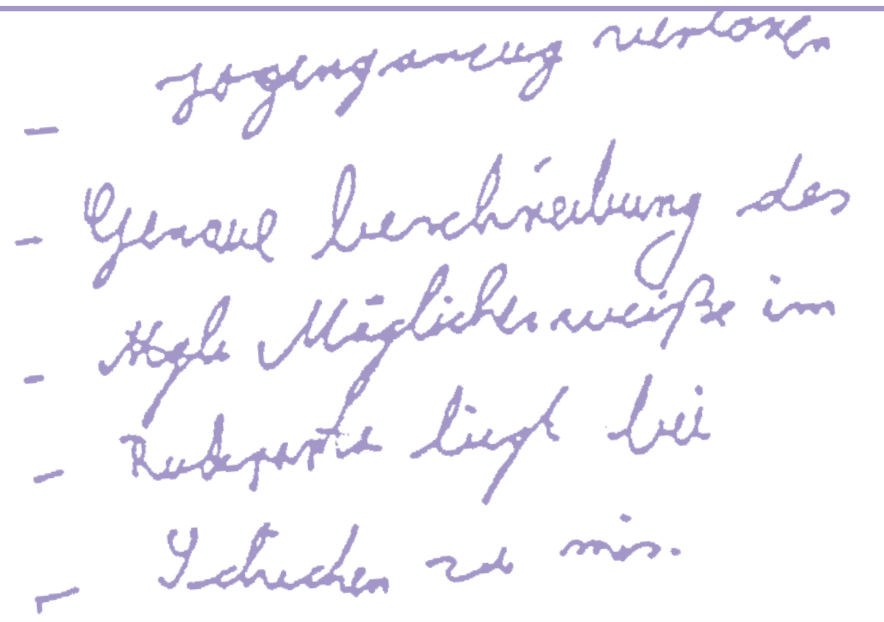 - Jogenganzug verloren
- Genaue beschreibung des
- Möglicherweiße im
- liegt bei
- Schicken zu mir.